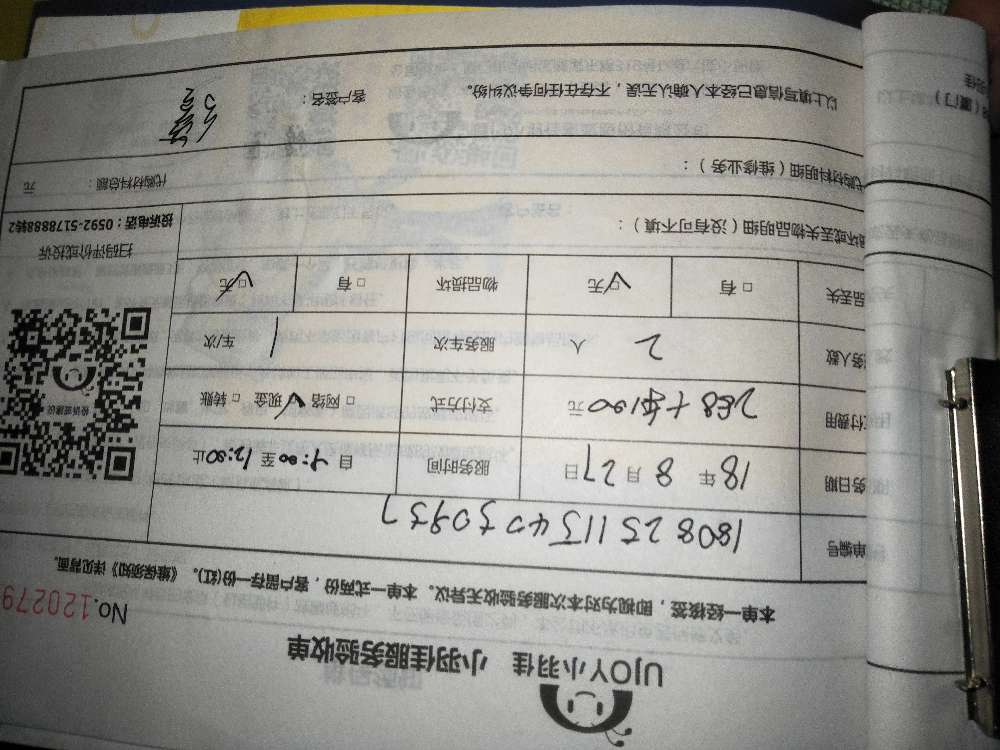 UJOY小羽佳 小羽佳服务验收单
No.120279
本单一经核签，即视为对本次服务验收无异议。本单一式两份，客户留存一份(红)。《维保须知》详见背面。
单编号 180825113405093
务日期 18年 8月27日 服务时间 自9:00至12:00止
付费用 元 支付方式 □网络 ☑现金 □转账
务人数 2 人 服务车次 1 车/次
品丢失 □有 ☑无 物品损坏 □有 ☑无
坏或丢失物品明细（没有可不填）：
扫码评价或投诉
投诉电话：0592-5178888转2
代购材料明细（维修业务）： 代购材料总额： 元
以上填写信息已经本人确认无误，不存在任何争议纠纷。 客户签名：